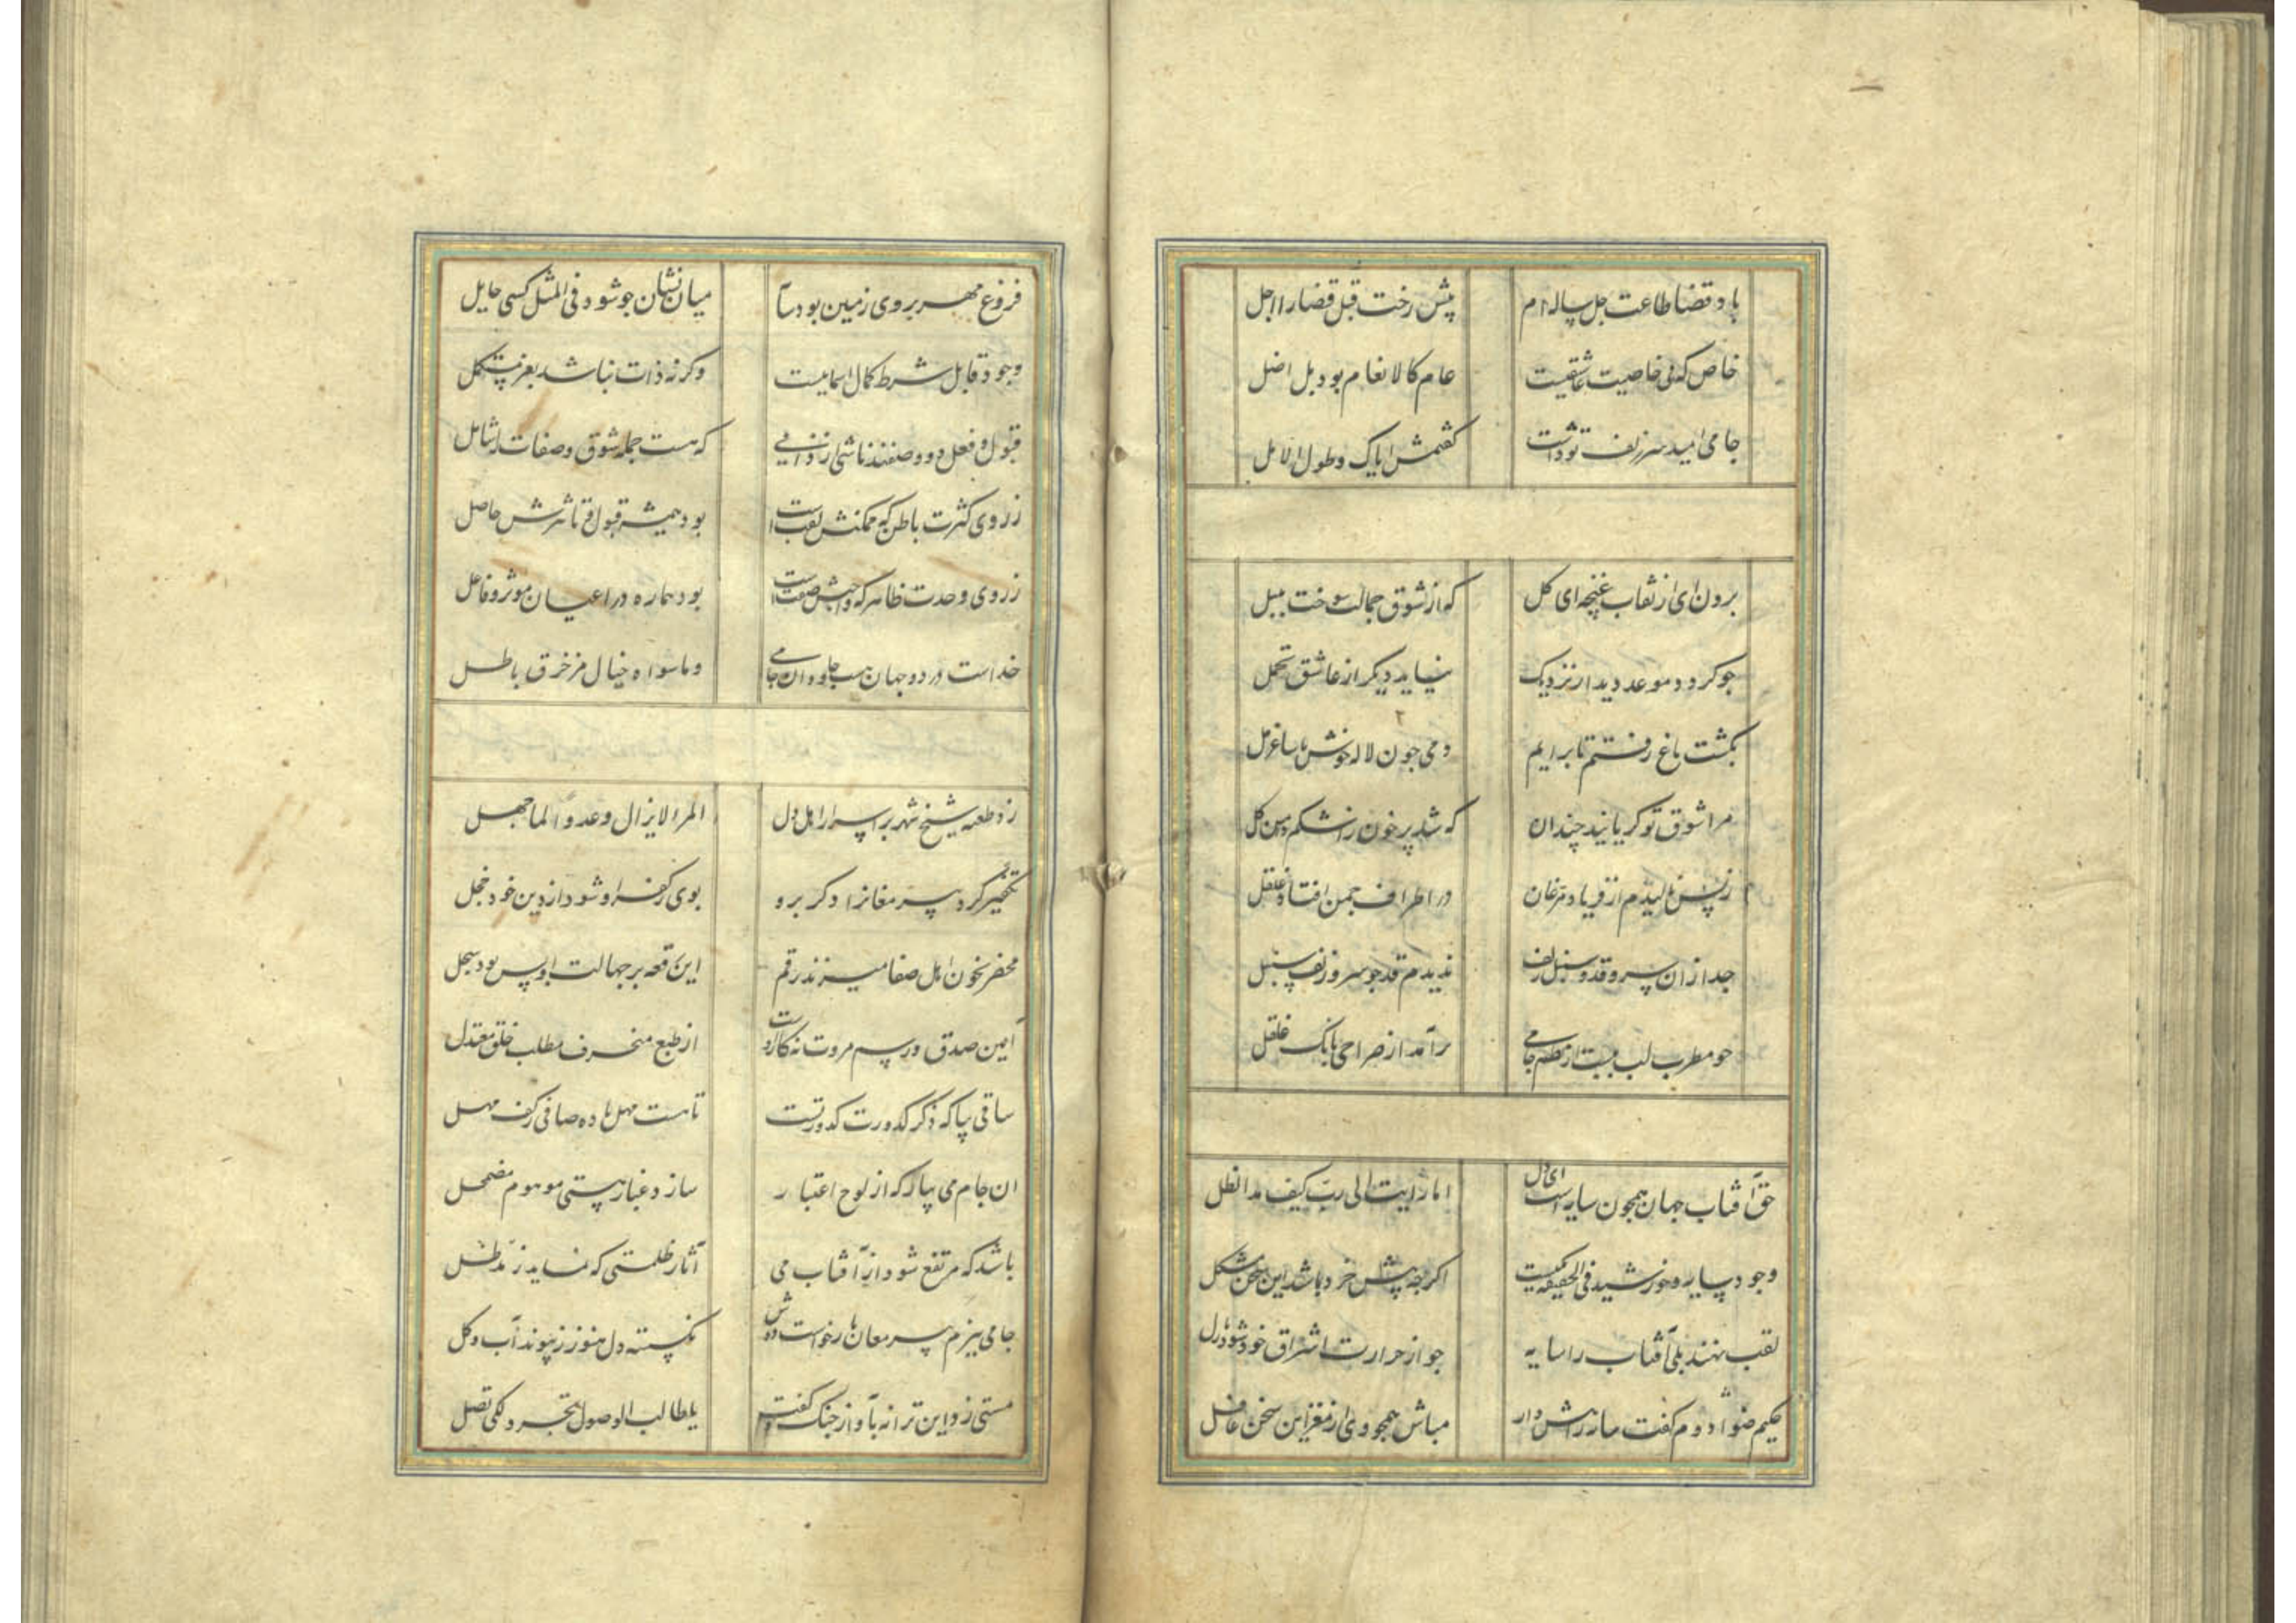 باد قضا طاعت جل ساله ام پیش رخت قبل قضا را اجل
خاص که نی خاصیت عاشقیست عام کالانعام بود بل اضل
جامی امید سر زلف تو داشت کفتمش ایاک و طول الامل
برون ای از نقاب غنچه ای کل که از شوق جمالت سوخت بلبل
جو کردد موعد دیدار نزدیک نیاید دیکر از عاشق تحمل
بکشت باغ رفتم تا برایم دمی جون لاله خوش با ساغر مل
مرا شوق تو کریانید چندان که شد پر خون ز اشکم دامن کل
ز بس نالیدم از فریاد مرغان در اطراف جمن افتاد غلغل
جدا زان سرو قد و سنبل زلف ندیدم قد جو سرو و زلف سنبل
جو مطرب لب ببست از نظم جامی برآمد از صراحی بانک غلغل
حق آفتاب جهان همجون سایه است ای دل اما رایت الی رب کیف مد الظل
وجود سایه و خورشید فی الحقیقه یکیست اکرجه پیش خرد باشد این سخن مشکل
لقب نهند بلی آفتاب را سایه جو از حرارت اشراق خود شود نازل
حکیم ضوء دوم کفت سازرش دار مباش همجو وی از مغز این سخن غافل
فروغ مهر بروی زمین بود سآ میان نشان جو شود فی المثل کسی حایل
وجود قابل شرط کمال اسماییست وکرنه ذات نباشد بغیر مستکمل
قبول و فعل دو وصفند ناشی از ذاتی که هست جمله شوق و صفات را شامل
ز روی کثرت باطن که ممکنش لقبست بود همیشه قبول و تاثرش حاصل
ز روی وحدت ظاهر که واجبش صفتست بود هماره در اعیان موثر و فاعل
خداست در دو جهان هست جاودان جامی و ماسواه خیال مزخرف باطل
زد طعنه شیخ شهر بر اسرار اهل دل المرء لایزال عدوا لما جهل
تکفیر کرد پیر مغانرا دکر برو بوی ز کفر او شود از دین خود خجل
محضر بخون اهل صفا میزند رقم این قعه بر جهالت او بس بود سجل
آیین صدق و رسم مروت نه کار اوست از طبع منحرف مطلب خلق معتدل
ساقی بیا که ذکر کدورت کدورتست تا هست مهل باده صافی ز کف مهل
ان جام می بیار که از لوح اعتبار سازد غبار هستی موهوم مضمحل
باشد که مرتفع شود از آفتاب می آثار ظلمتی که نماید ز مد ظل
جامی ببزم پیر مغان بار خواست دوش نکسسته دل هنوز ز پیوند آب و کل
مستی زد این ترانه بآواز جنک و کفت یا طالب الوصول تجرد لکی تصل